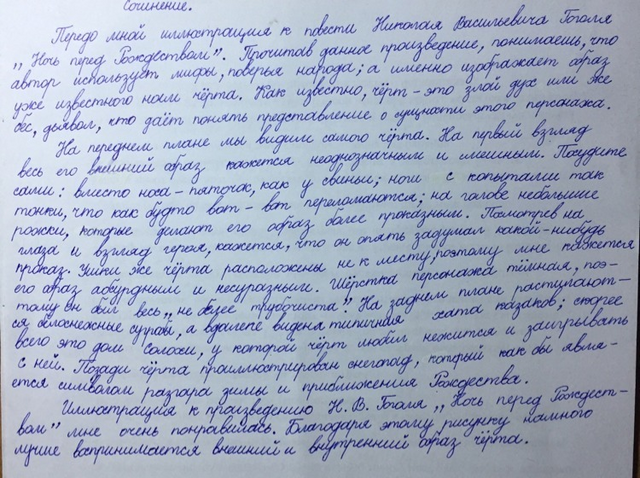 Сочинение.
Передо мной иллюстрация к повести Николая Васильевича Гоголя
„Ночь перед Рождеством". Прочитав данное произведение, понимаешь, что
автор использует мифы, поверья народа; а именно изображает образ
уже известного нам чёрта. Как известно, чёрт - это злой дух или же
бес, дьявол, что даёт понять представление о сущности этого персонажа.
На переднем плане мы видим самого чёрта. На первый взгляд
весь его внешний образ кажется неоднозначным и смешным. Посудите
сами: вместо носа - пяточок, как у свиньи; ноги с копытами так
тонки, что как будто вот-вот переломаются; на голове небольшие
рожки, которые делают его образ более проказным. Посмотрев на
глаза и взгляд героя, кажется, что он опять задумал какой-нибудь
проказ. Ушки же чёрта расположены не к месту, поэтому мне кажется
его образ абсурдным и несуразным. Шёрстка персонажа тёмная, поэ-
тому он был весь „не белее трубочиста". На заднем плане расстилают-
ся белоснежные сугробы, а вдалеке видна типичная хата казаков; скорее
всего это дом Солохи, у которой чёрт любил нежится и заигрывать
с ней. Позади чёрта проиллюстрирован снегопад, который как бы явля-
ется символом разгара зимы и приближения Рождества.
Иллюстрация к произведению Н. В. Гоголя „Ночь перед Рождест-
вом" мне очень понравилась. Благодаря этому рисунку намного
лучше воспринимается внешний и внутренний образ чёрта.